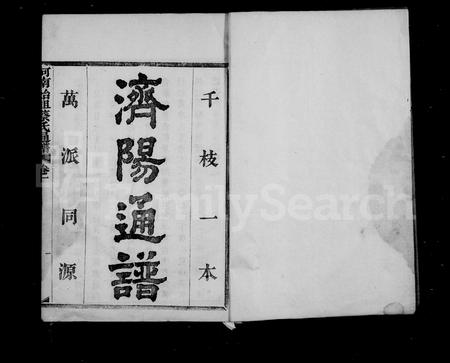 千枝一本
濟陽通譜
萬派同源
河南始祖蔡氏通譜
FamilySearch